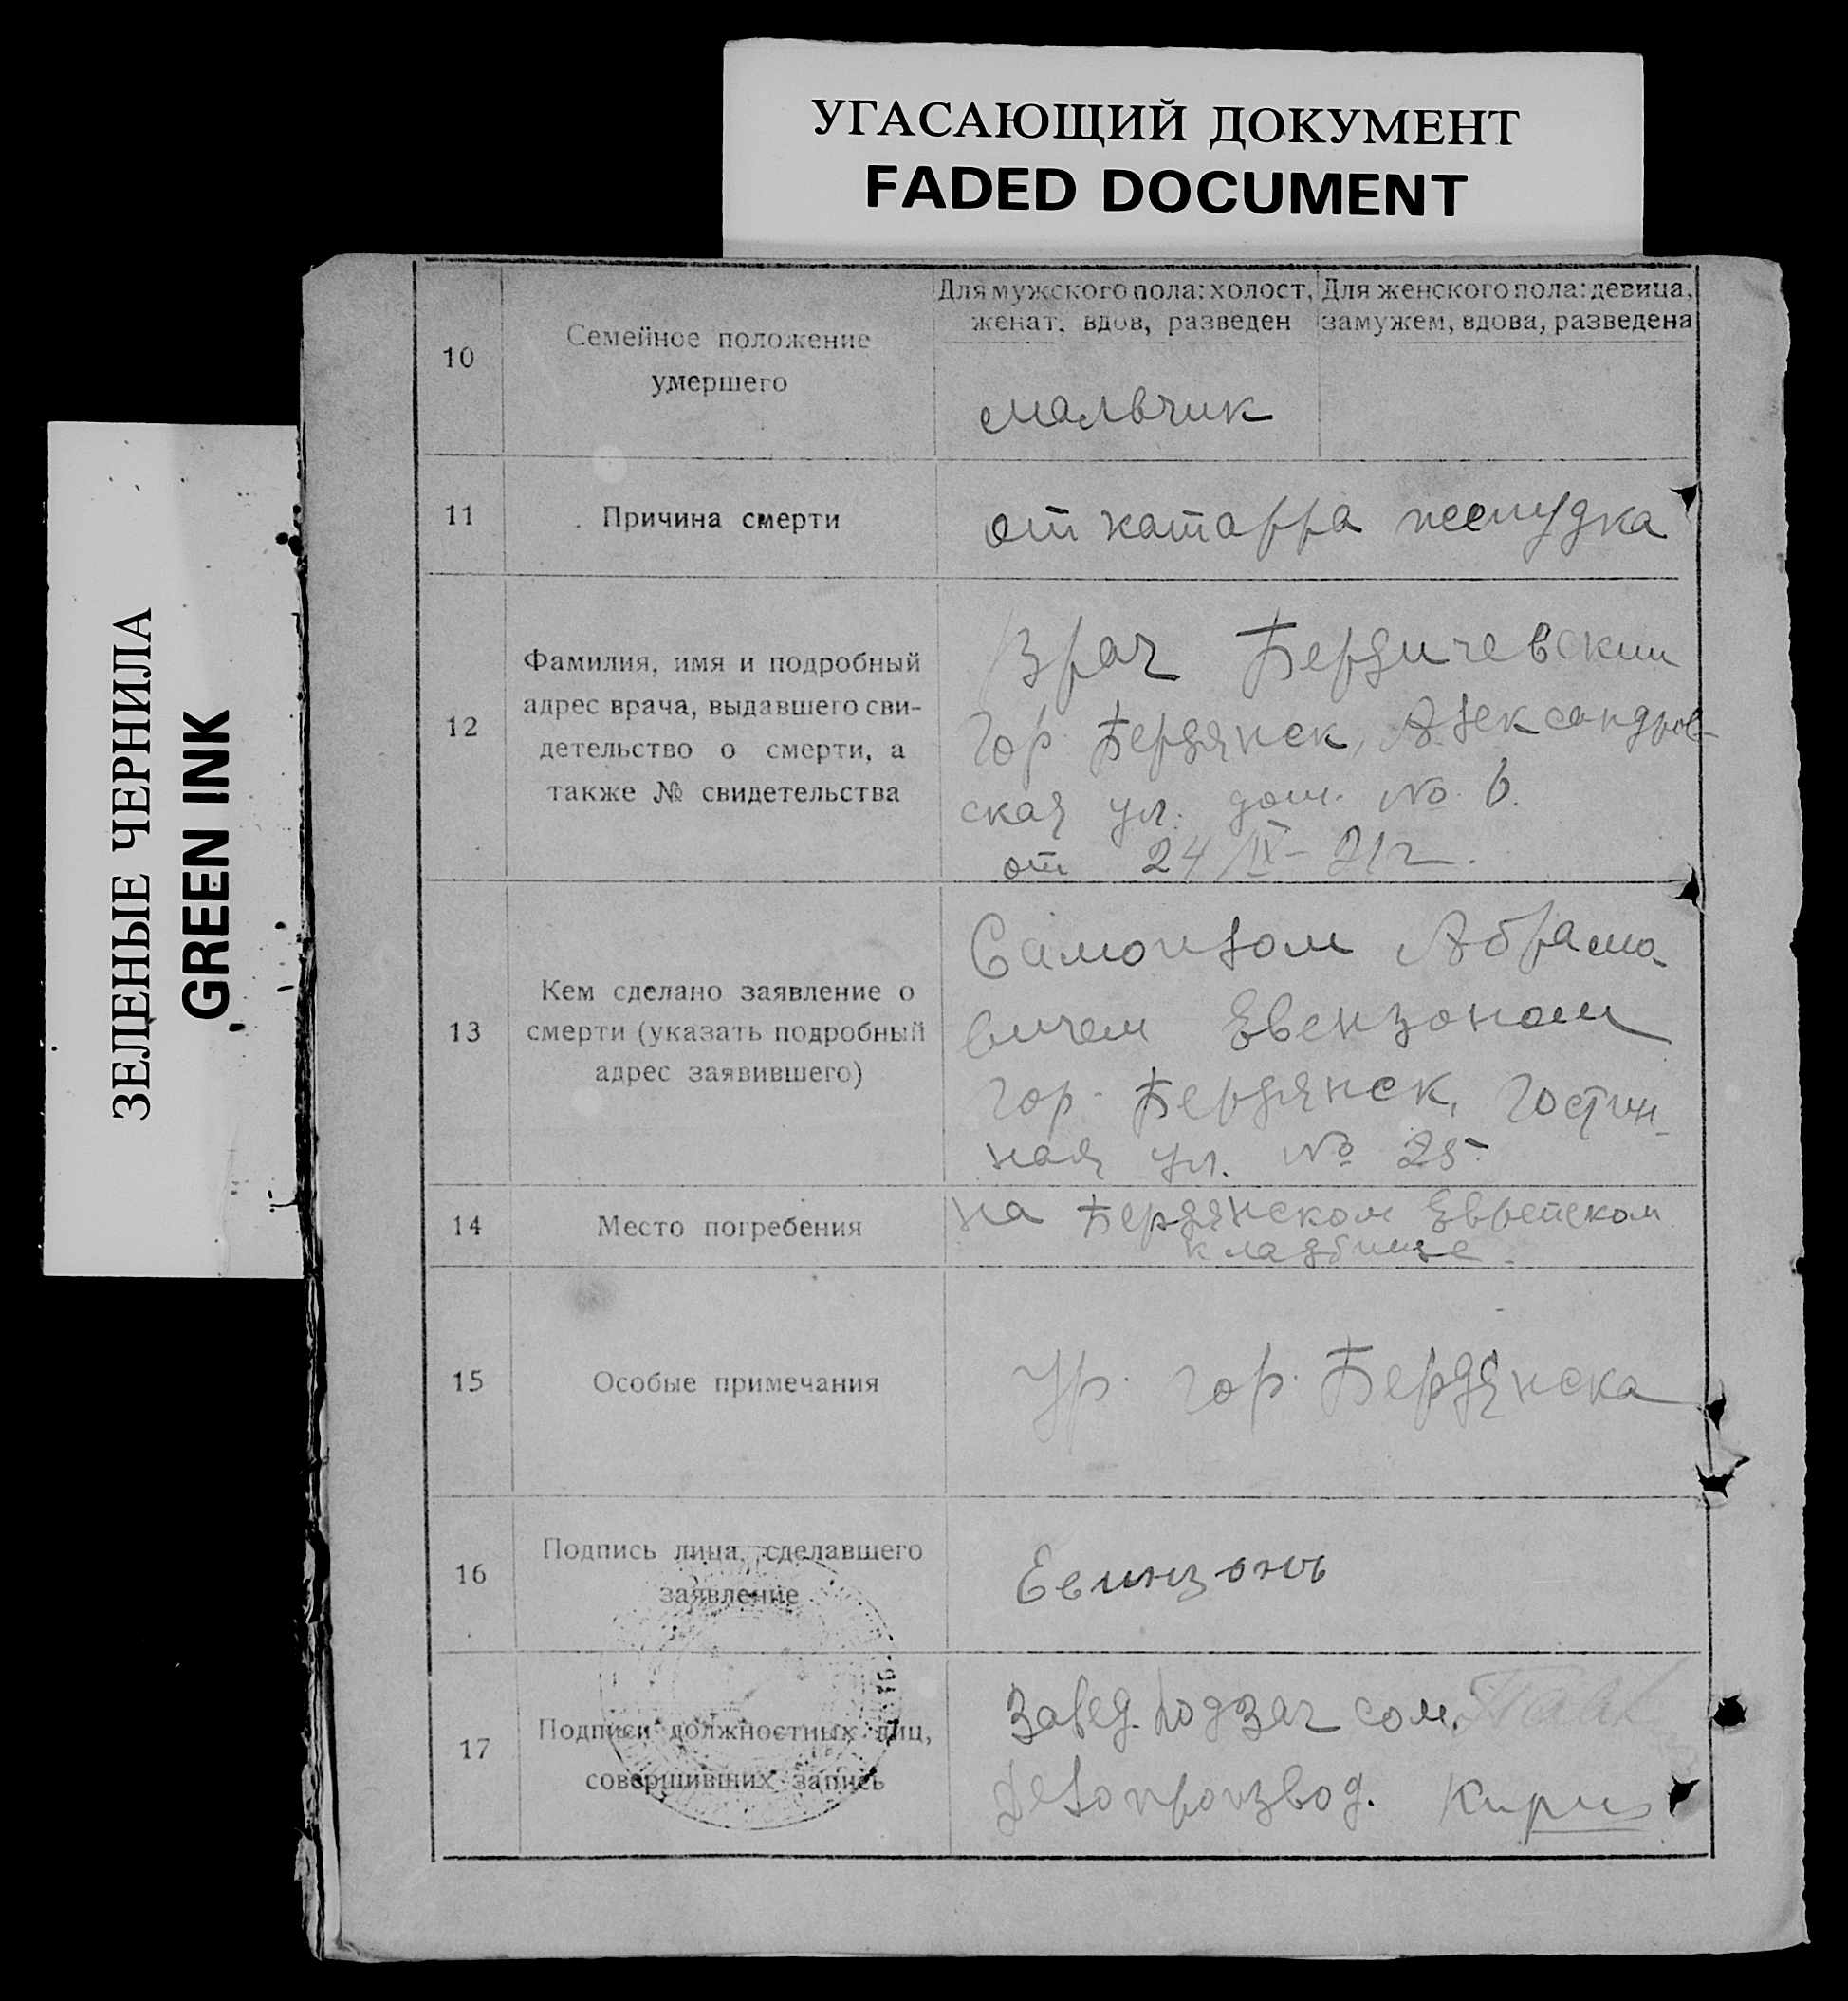 УГАСАЮЩИЙ ДОКУМЕНТ
FADED DOCUMENT
ЗЕЛЕНЫЕ ЧЕРНИЛА
GREEN INK
10
Семейное положение
умершего
Для мужского пола: холост,
женат, вдов, разведен
Для женского пола: девица,
замужем, вдова, разведена
мальчик
11
Причина смерти
от катарра желудка
12
Фамилия, имя и подробный
адрес врача, выдавшего сви-
детельство о смерти, а
также № свидетельства
Врач Бердичевский
Гор. Бердянск, Александров-
ская ул. дом. № 6.
от 24/IX-21 г.
13
Кем сделано заявление о
смерти (указать подробный
адрес заявившего)
Самоилом Абрамо-
вичем Евензоном
гор. Бердянск, Гостин-
ная ул. № 25.
14
Место погребения
на Бердянском Еврейском
кладбище.
15
Особые примечания
Ур. гор. Бердянска
16
Подпись лица, сделавшего
заявление
Евинзонъ
17
Подписи должностных лиц,
совершивших запись
Завед. подзаг сом.
Делопроизвод.